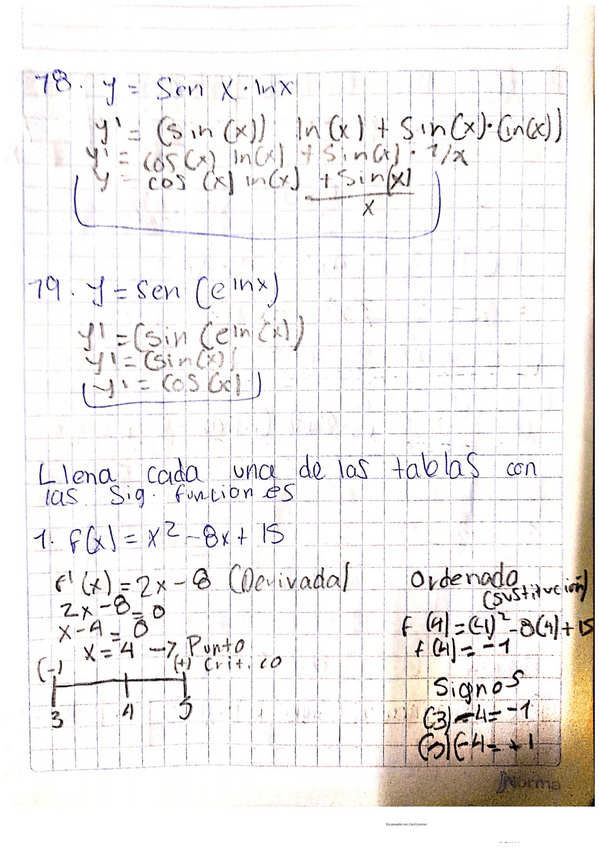 18. y = Sen x · lnx
y' = (sin(x)) ln(x) + sin(x)·(ln(x))
y' = cos(x) ln(x) + sin(x) · 1/x
y = cos(x) ln(x) + sin(x)
x
19. y = sen (e lnx)
y' = (sin(e ln(x))
y' = (sin(x))
y' = cos(x)
Llena cada una de las tablas con
las Sig. funciones
1. f(x) = x² - 8x + 15
f'(x) = 2x - 8 (Derivada)
2x - 8 = 0
x - 4 = 0
x = 4 → Punto
Critico
(-) (+)
3 4 5
Ordenado
(sustitución)
f(4) = (4)² - 8(4) + 15
f(4) = -1
Signos
(3) - 4 = -1
(5)(-4 = +1
Norma
Escaneado con CamScanner